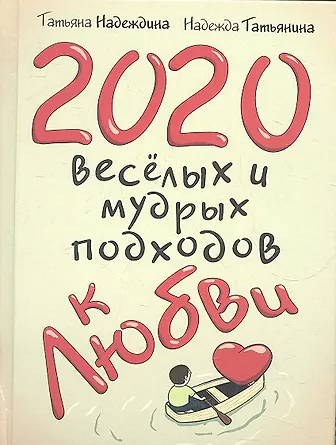 Татьяна Надеждина Надежда Татьянина
2020
весёлых и
мудрых
подходов
к
Любви